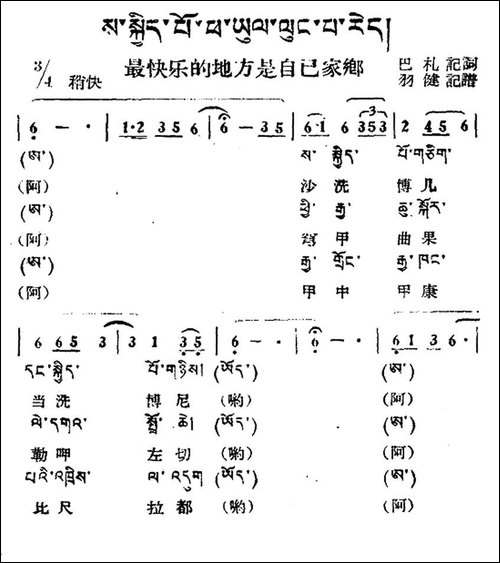 ས་སྐྱིད་པོ་ཕ་ཡུལ་ལུང་པ་རེད།
3/4 稍快 最快乐的地方是自己家鄉 巴札記詞
羽健記譜
6 - · | 1·2 3 5 6 | 6 - 3 5 | 6·1 6 3 5 3 | 2 4 5 6 |
(ཨ་) ས་ སྐྱིད་ པོ་གཅིག་
(阿) 沙 洗 博 几
(ཨ་) ཕྱི་ རྒྱ་ ཆུ་ སྐོར་
(阿) 甲 曲 果
(ཨ་) རྒྱ་ གྲོང་ རྒྱ་ ཁང་
(阿) 甲 中 甲 康
| 6 6 5 3 | 3 1 3 5 | 6 - · | 6 - · | 6 1 3 6 · |
དང་སྐྱིད་ པོ་གཉིས། (ཡོད་) (ཨ་)
当 洗 博 尼 (喲) (阿)
ལེ་དགའ་ ཆེ། (ཡོད་) (ཨ་)
勒 呷 左 切 (喲) (阿)
པའི་འཁྲིས་ ལ་འདུག (ཡོད་) (ཨ་)
比 尺 拉 都 (喲) (阿)